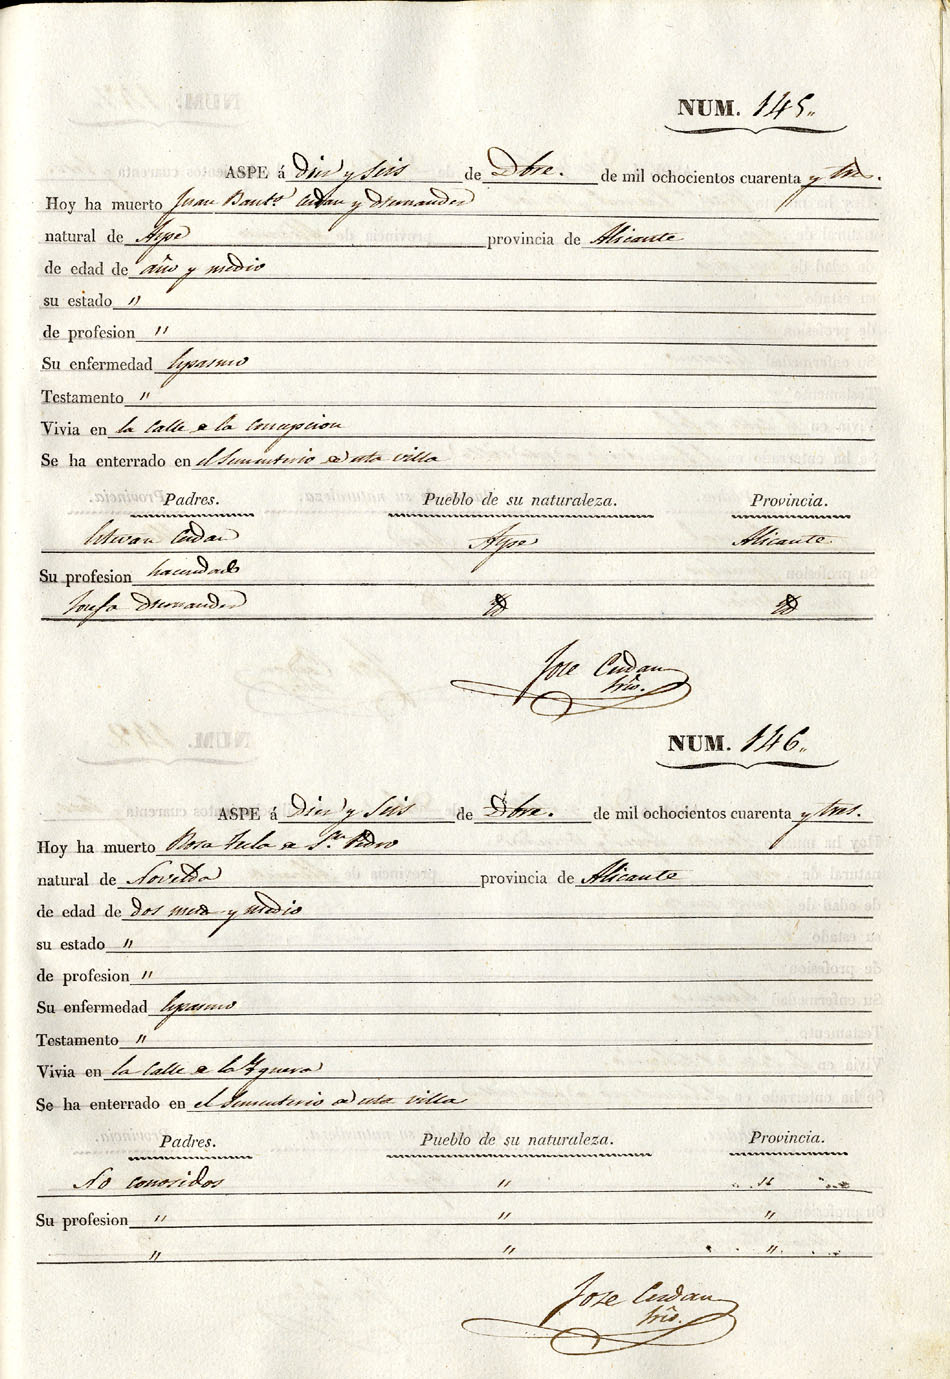 NUM. 145.
ASPE á Diez y Seis de Dbre. de mil ochocientos cuarenta y tres.
Hoy ha muerto Juan Baut.ª Cerdan y Hernandez
natural de Aspe provincia de Alicante
de edad de año y medio
su estado "
de profesion "
Su enfermedad Espasmo
Testamento "
Vivia en la Calle de la Concepcion
Se ha enterrado en el Sementerio de esta villa
Padres. Pueblo de su naturaleza. Provincia.
Estevan Cerdan Aspe Alicante
Su profesion hacendado
Josefa Hernandez Id Id
Jose Cerdan
Srio.
NUM. 146.
ASPE á Diez y Seis de Dbre. de mil ochocientos cuarenta y tres.
Hoy ha muerto Rosa Tecla de Sn. Pedro
natural de Novelda provincia de Alicante
de edad de dos meses y medio
su estado "
de profesion "
Su enfermedad Espasmo
Testamento "
Vivia en la Calle de la Yguera
Se ha enterrado en el Sementerio de esta villa
Padres. Pueblo de su naturaleza. Provincia.
No conosidos " "
Su profesion " " "
" " "
Jose Cerdan
Srio.